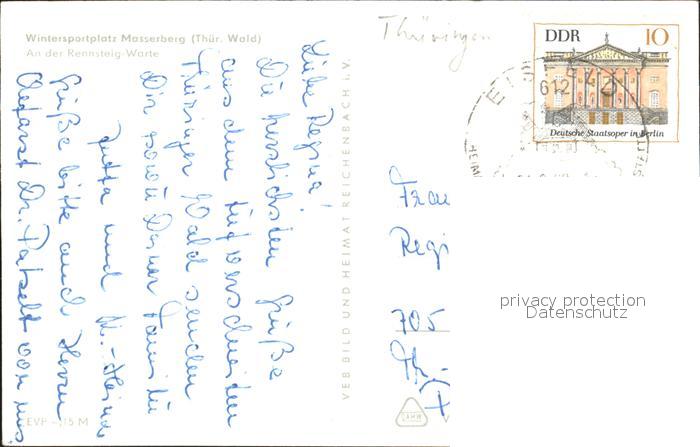 Wintersportplatz Masserberg (Thür. Wald)
An der Rennsteig-Warte
Liebe Regina!
Die herzlichsten Grüße
aus dem tief verschneiten
Thüringer Wald senden
Dir sowie Deiner Familie
Jutta und K.-Heinz
Grüße bitte auch Herrn
Chefarzt Dr. von uns
EVP -,15 M
VEB BILD UND HEIMAT REICHENBACH i. V.
Thüringen
DDR 10
Deutsche Staatsoper in Berlin
Frau
Regi
705
privacy protection
Datenschutz